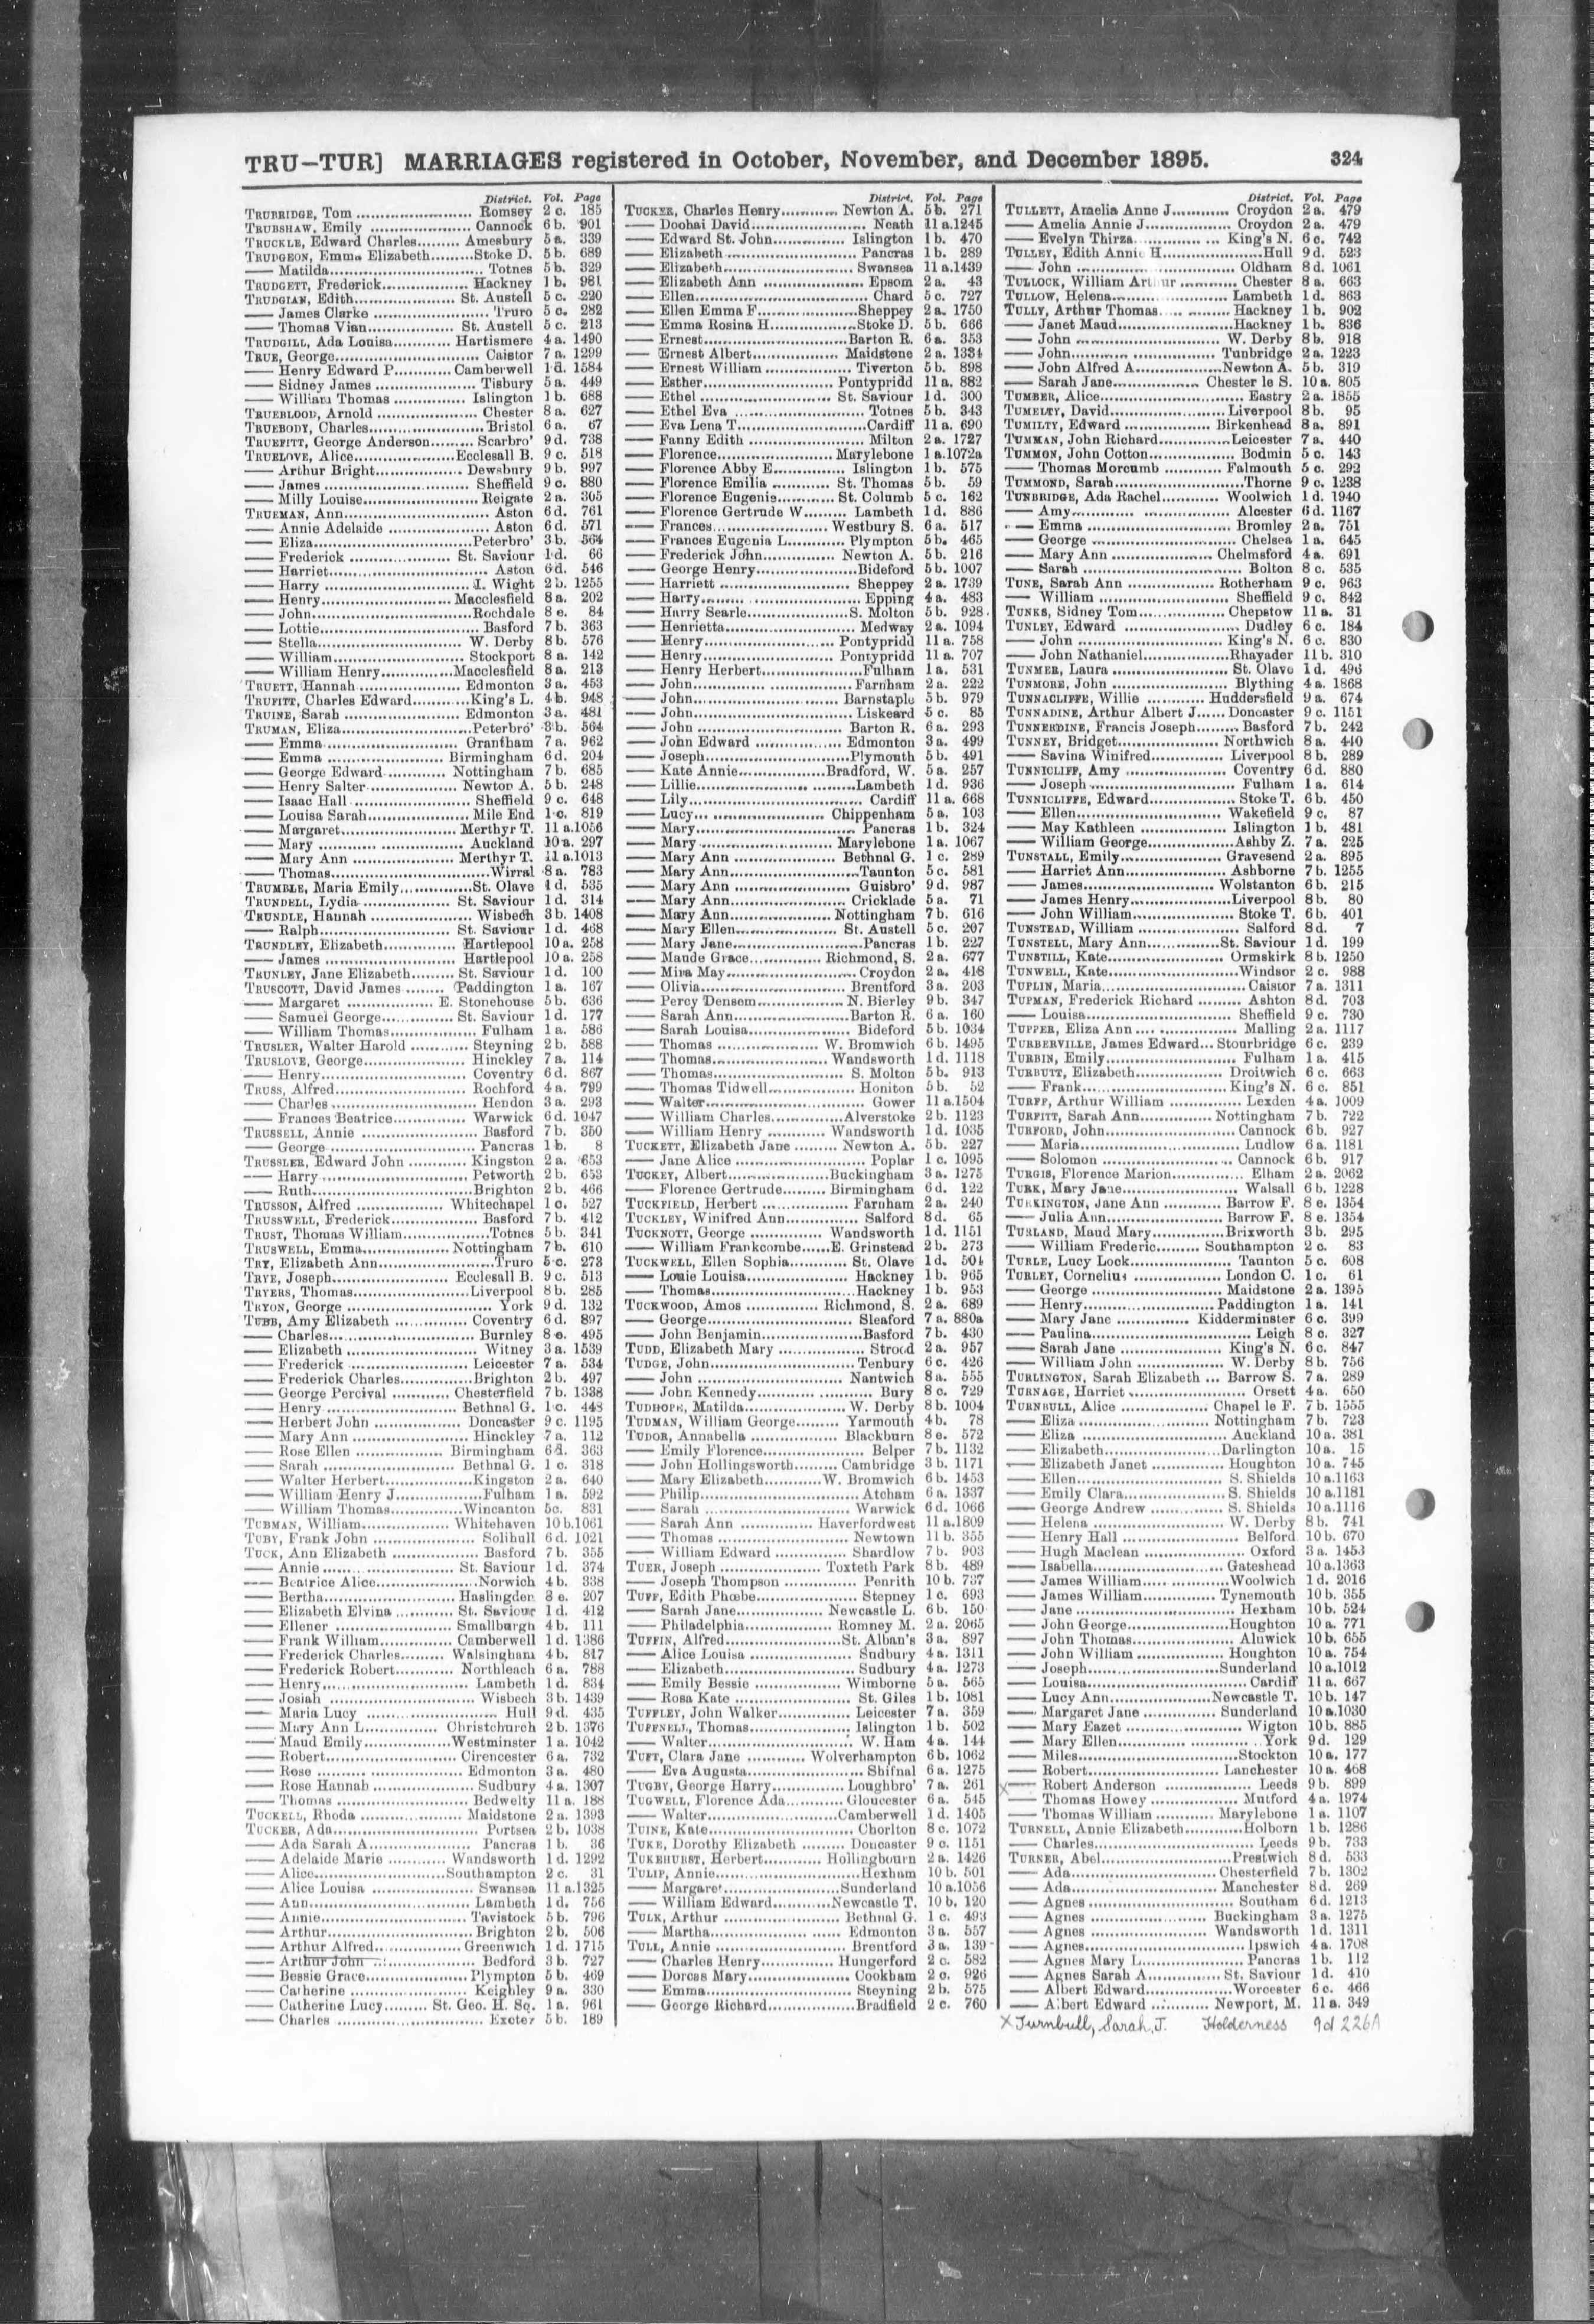 TRU—TUR] MARRIAGES registered in October, November, and December 1895. 324
District. Vol. Page
TRUBRIDGE, Tom Romsey 2 c. 185
TRUBSHAW, Emily Cannock 6 b. 901
TRUCKLE, Edward Charles Amesbury 5 a. 339
TRUDGEON, Emma Elizabeth Stoke D. 5 b. 689
—— Matilda Totnes 5 b. 329
TRUDGETT, Frederick Hackney 1 b. 981
TRUDGIAN, Edith St. Austell 5 c. 220
—— James Clarke Truro 5 c. 282
—— Thomas Vian St. Austell 5 c. 213
TRUDGILL, Ada Louisa Hartismere 4 a. 1490
TRUE, George Caistor 7 a. 1299
—— Henry Edward P. Camberwell 1 d. 1584
—— Sidney James Tisbury 5 a. 449
—— William Thomas Islington 1 b. 688
TRUEBLOOD, Arnold Chester 8 a. 627
TRUEBODY, Charles Bristol 6 a. 67
TRUEFITT, George Anderson Scarbro' 9 d. 738
TRUELOVE, Alice Ecclesall B. 9 c. 518
—— Arthur Bright Dewsbury 9 b. 997
—— James Sheffield 9 c. 880
—— Milly Louise Reigate 2 a. 305
TRUEMAN, Ann Aston 6 d. 761
—— Annie Adelaide Aston 6 d. 571
—— Eliza Peterbro' 3 b. 564
—— Frederick St. Saviour 1 d. 66
—— Harriet Aston 6 d. 546
—— Harry I. Wight 2 b. 1255
—— Henry Macclesfield 8 a. 202
—— John Rochdale 8 e. 84
—— Lottie Basford 7 b. 363
—— Stella W. Derby 8 b. 576
—— William Stockport 8 a. 142
—— William Henry Macclesfield 8 a. 213
TRUETT, Hannah Edmonton 3 a. 453
TRUFITT, Charles Edward King's L. 4 b. 948
TRUINE, Sarah Edmonton 3 a. 481
TRUMAN, Eliza Peterbro' 3 b. 564
—— Emma Grantham 7 a. 962
—— Emma Birmingham 6 d. 204
—— George Edward Nottingham 7 b. 685
—— Henry Salter Newton A. 5 b. 248
—— Isaac Hall Sheffield 9 c. 648
—— Louisa Sarah Mile End 1 c. 819
—— Margaret Merthyr T. 11 a. 1056
—— Mary Auckland 10 a. 297
—— Mary Ann Merthyr T. 11 a. 1013
—— Thomas Wirral 8 a. 783
TRUMBLE, Maria Emily St. Olave 1 d. 535
TRUNDELL, Lydia St. Saviour 1 d. 314
TRUNDLE, Hannah Wisbech 3 b. 1408
—— Ralph St. Saviour 1 d. 468
TRUNDLEY, Elizabeth Hartlepool 10 a. 258
—— James Hartlepool 10 a. 258
TRUNLEY, Jane Elizabeth St. Saviour 1 d. 100
TRUSCOTT, David James Paddington 1 a. 167
—— Margaret E. Stonehouse 5 b. 636
—— Samuel George St. Saviour 1 d. 177
—— William Thomas Fulham 1 a. 586
TRUSLER, Walter Harold Steyning 2 b. 588
TRUSLOVE, George Hinckley 7 a. 114
—— Henry Coventry 6 d. 867
TRUSS, Alfred Rochford 4 a. 799
—— Charles Hendon 3 a. 293
—— Frances Beatrice Warwick 6 d. 1047
TRUSSELL, Annie Basford 7 b. 350
—— George Pancras 1 b. 8
TRUSSLER, Edward John Kingston 2 a. 653
—— Harry Petworth 2 b. 653
—— Ruth Brighton 2 b. 466
TRUSSON, Alfred Whitechapel 1 c. 527
TRUSSWELL, Frederick Basford 7 b. 412
TRUST, Thomas William Totnes 5 b. 341
TRUSWELL, Emma Nottingham 7 b. 610
TRY, Elizabeth Ann Truro 5 c. 273
TRYE, Joseph Ecclesall B. 9 c. 513
TRYERS, Thomas Liverpool 8 b. 285
TRYON, George York 9 d. 132
TUBB, Amy Elizabeth Coventry 6 d. 897
—— Charles Burnley 8 e. 495
—— Elizabeth Witney 3 a. 1539
—— Frederick Leicester 7 a. 534
—— Frederick Charles Brighton 2 b. 497
—— George Percival Chesterfield 7 b. 1338
—— Henry Bethnal G. 1 c. 448
—— Herbert John Doncaster 9 c. 1195
—— Mary Ann Hinckley 7 a. 112
—— Rose Ellen Birmingham 6 d. 363
—— Sarah Bethnal G. 1 c. 318
—— Walter Herbert Kingston 2 a. 640
—— William Henry J. Fulham 1 a. 592
—— William Thomas Wincanton 5c. 831
TUBMAN, William Whitehaven 10 b. 1061
TUBY, Frank John Solihull 6 d. 1021
TUCK, Ann Elizabeth Basford 7 b. 355
—— Annie St. Saviour 1 d. 374
—— Beatrice Alice Norwich 4 b. 338
—— Bertha Haslingden 8 e. 207
—— Elizabeth Elvina St. Saviour 1 d. 412
—— Ellener Smallburgh 4 b. 111
—— Frank William Camberwell 1 d. 1386
—— Frederick Charles Walsingham 4 b. 817
—— Frederick Robert Northleach 6 a. 788
—— Henry Lambeth 1 d. 834
—— Josiah Wisbech 3 b. 1439
—— Maria Lucy Hull 9 d. 435
—— Mary Ann L. Christchurch 2 b. 1376
—— Maud Emily Westminster 1 a. 1042
—— Robert Cirencester 6 a. 732
—— Rose Edmonton 3 a. 480
—— Rose Hannah Sudbury 4 a. 1307
—— Thomas Bedwelty 11 a. 188
TUCKELL, Rhoda Maidstone 2 a. 1393
TUCKER, Ada Portsea 2 b. 1038
—— Ada Sarah A. Pancras 1 b. 36
—— Adelaide Marie Wandsworth 1 d. 1292
—— Alice Southampton 2 c. 31
—— Alice Louisa Swansea 11 a. 1325
—— Ann Lambeth 1 d. 756
—— Annie Tavistock 5 b. 796
—— Arthur Brighton 2 b. 506
—— Arthur Alfred Greenwich 1 d. 1715
—— Arthur John Bedford 3 b. 727
—— Bessie Grace Plympton 5 b. 469
—— Catherine Keighley 9 a. 330
—— Catherine Lucy St. Geo. H. Sq. 1 a. 961
—— Charles Exeter 5 b. 189
District. Vol. Page
TUCKER, Charles Henry Newton A. 5 b. 271
—— Doohai David Neath 11 a. 1245
—— Edward St. John Islington 1 b. 470
—— Elizabeth Pancras 1 b. 289
—— Elizabeth Swansea 11 a. 1439
—— Elizabeth Ann Epsom 2 a. 43
—— Ellen Chard 5 c. 727
—— Ellen Emma F. Sheppey 2 a. 1750
—— Emma Rosina H. Stoke D. 5 b. 666
—— Ernest Barton R. 6 a. 353
—— Ernest Albert Maidstone 2 a. 1334
—— Ernest William Tiverton 5 b. 898
—— Esther Pontypridd 11 a. 882
—— Ethel St. Saviour 1 d. 300
—— Ethel Eva Totnes 5 b. 343
—— Eva Lena T. Cardiff 11 a. 690
—— Fanny Edith Milton 2 a. 1727
—— Florence Marylebone 1 a. 1072a
—— Florence Abby E. Islington 1 b. 575
—— Florence Emilia St. Thomas 5 b. 59
—— Florence Eugenie St. Columb 5 c. 162
—— Florence Gertrude W. Lambeth 1 d. 886
—— Frances Westbury S. 6 a. 517
—— Frances Eugenia L. Plympton 5 b. 465
—— Frederick John Newton A. 5 b. 216
—— George Henry Bideford 5 b. 1007
—— Harriett Sheppey 2 a. 1739
—— Harry Epping 4 a. 483
—— Harry Searle S. Molton 5 b. 928
—— Henrietta Medway 2 a. 1094
—— Henry Pontypridd 11 a. 758
—— Henry Pontypridd 11 a. 707
—— Henry Herbert Fulham 1 a. 531
—— John Farnham 2 a. 222
—— John Barnstaple 5 b. 979
—— John Liskeard 5 c. 85
—— John Barton R. 6 a. 293
—— John Edward Edmonton 3 a. 499
—— Joseph Plymouth 5 b. 491
—— Kate Annie Bradford, W. 5 a. 257
—— Lillie Lambeth 1 d. 936
—— Lily Cardiff 11 a. 668
—— Lucy Chippenham 5 a. 103
—— Mary Pancras 1 b. 324
—— Mary Marylebone 1 a. 1067
—— Mary Ann Bethnal G. 1 c. 289
—— Mary Ann Taunton 5 c. 581
—— Mary Ann Guisbro' 9 d. 987
—— Mary Ann Cricklade 5 a. 71
—— Mary Ann Nottingham 7 b. 616
—— Mary Ellen St. Austell 5 c. 207
—— Mary Jane Pancras 1 b. 227
—— Maude Grace Richmond, S. 2 a. 677
—— Mira May Croydon 2 a. 418
—— Olivia Brentford 3 a. 203
—— Percy Densom N. Bierley 9 b. 347
—— Sarah Ann Barton R. 6 a. 160
—— Sarah Louisa Bideford 5 b. 1034
—— Thomas W. Bromwich 6 b. 1495
—— Thomas Wandsworth 1 d. 1118
—— Thomas S. Molton 5 b. 913
—— Thomas Tidwell Honiton 5 b. 52
—— Walter Gower 11 a. 1504
—— William Charles Alverstoke 2 b. 1123
—— William Henry Wandsworth 1 d. 1035
TUCKETT, Elizabeth Jane Newton A. 5 b. 227
—— Jane Alice Poplar 1 c. 1095
TUCKEY, Albert Buckingham 3 a. 1275
—— Florence Gertrude Birmingham 6 d. 122
TUCKFIELD, Herbert Farnham 2 a. 240
TUCKLEY, Winifred Ann Salford 8 d. 65
TUCKNOTT, George Wandsworth 1 d. 1151
—— William Frankcombe E. Grinstead 2 b. 273
TUCKWELL, Ellen Sophia St. Olave 1 d. 504
—— Louie Louisa Hackney 1 b. 965
—— Thomas Hackney 1 b. 953
TUCKWOOD, Amos Richmond, S. 2 a. 689
—— George Sleaford 7 a. 880a
—— John Benjamin Basford 7 b. 430
TUDD, Elizabeth Mary Strood 2 a. 957
TUDGE, John Tenbury 6 c. 426
—— John Nantwich 8 a. 555
—— John Kennedy Bury 8 c. 729
TUDHOPE, Matilda W. Derby 8 b. 1004
TUDMAN, William George Yarmouth 4 b. 78
TUDOR, Annabella Blackburn 8 e. 572
—— Emily Florence Belper 7 b. 1132
—— John Hollingsworth Cambridge 3 b. 1171
—— Mary Elizabeth W. Bromwich 6 b. 1453
—— Philip Atcham 6 a. 1337
—— Sarah Warwick 6 d. 1066
—— Sarah Ann Haverfordwest 11 a. 1809
—— Thomas Newtown 11 b. 355
—— William Edward Shardlow 7 b. 903
TUER, Joseph Toxteth Park 8 b. 489
—— Joseph Thompson Penrith 10 b. 737
TUFF, Edith Phœbe Stepney 1 c. 693
—— Sarah Jane Newcastle L. 6 b. 150
—— Philadelphia Romney M. 2 a. 2065
TUFFIN, Alfred St. Alban's 3 a. 897
—— Alice Louisa Sudbury 4 a. 1311
—— Elizabeth Sudbury 4 a. 1273
—— Emily Bessie Wimborne 5 a. 565
—— Rosa Kate St. Giles 1 b. 1081
TUFFLEY, John Walker Leicester 7 a. 359
TUFFNELL, Thomas Islington 1 b. 502
—— Walter W. Ham 4 a. 144
TUFT, Clara Jane Wolverhampton 6 b. 1062
—— Eva Augusta Shifnal 6 a. 1275
TUGBY, George Harry Loughbro' 7 a. 261
TUGWELL, Florence Ada Gloucester 6 a. 545
—— Walter Camberwell 1 d. 1405
TUINE, Kate Chorlton 8 c. 1072
TUKE, Dorothy Elizabeth Doncaster 9 c. 1151
TUKEHURST, Herbert Hollingbourn 2 a. 1426
TULIP, Annie Hexham 10 b. 501
—— Margaret Sunderland 10 a. 1056
—— William Edward Newcastle T. 10 b. 120
TULK, Arthur Bethnal G. 1 c. 493
—— Martha Edmonton 3 a. 557
TULL, Annie Brentford 3 a. 139
—— Charles Henry Hungerford 2 c. 582
—— Dorcas Mary Cookham 2 c. 926
—— Emma Steyning 2 b. 575
—— George Richard Bradfield 2 c. 760
District. Vol. Page
TULLETT, Amelia Anne J. Croydon 2 a. 479
—— Amelia Annie J. Croydon 2 a. 479
—— Evelyn Thirza King's N. 6 c. 742
TULLEY, Edith Annie H. Hull 9 d. 523
—— John Oldham 8 d. 1061
TULLOCK, William Arthur Chester 8 a. 663
TULLOW, Helena Lambeth 1 d. 863
TULLY, Arthur Thomas Hackney 1 b. 902
—— Janet Maud Hackney 1 b. 836
—— John W. Derby 8 b. 918
—— John Tunbridge 2 a. 1223
—— John Alfred A. Newton A. 5 b. 319
—— Sarah Jane Chester le S. 10 a. 805
TUMBER, Alice Eastry 2 a. 1855
TUMELTY, David Liverpool 8 b. 95
TUMILTY, Edward Birkenhead 8 a. 891
TUMMAN, John Richard Leicester 7 a. 440
TUMMON, John Cotton Bodmin 5 c. 143
—— Thomas Morcumb Falmouth 5 c. 292
TUMMOND, Sarah Thorne 9 c. 1238
TUNBRIDGE, Ada Rachel Woolwich 1 d. 1940
—— Amy Alcester 6 d. 1167
—— Emma Bromley 2 a. 751
—— George Chelsea 1 a. 645
—— Mary Ann Chelmsford 4 a. 691
—— Sarah Bolton 8 c. 535
TUNE, Sarah Ann Rotherham 9 c. 963
—— William Sheffield 9 c. 842
TUNKS, Sidney Tom Chepstow 11 a. 31
TUNLEY, Edward Dudley 6 c. 184
—— John King's N. 6 c. 830
—— John Nathaniel Rhayader 11 b. 310
TUNMER, Laura St. Olave 1 d. 496
TUNMORE, John Blything 4 a. 1868
TUNNACLIFFE, Willie Huddersfield 9 a. 674
TUNNADINE, Arthur Albert J. Doncaster 9 c. 1151
TUNNERDINE, Francis Joseph Basford 7 b. 242
TUNNEY, Bridget Northwich 8 a. 440
—— Savina Winifred Liverpool 8 b. 289
TUNNICLIFF, Amy Coventry 6 d. 880
—— Joseph Fulham 1 a. 614
TUNNICLIFFE, Edward Stoke T. 6 b. 450
—— Ellen Wakefield 9 c. 87
—— May Kathleen Islington 1 b. 481
—— William George Ashby Z. 7 a. 225
TUNSTALL, Emily Gravesend 2 a. 895
—— Harriet Ann Ashborne 7 b. 1255
—— James Wolstanton 6 b. 215
—— James Henry Liverpool 8 b. 80
—— John William Stoke T. 6 b. 401
TUNSTEAD, William Salford 8 d. 7
TUNSTELL, Mary Ann St. Saviour 1 d. 199
TUNSTILL, Kate Ormskirk 8 b. 1250
TUNWELL, Kate Windsor 2 c. 988
TUPLIN, Maria Caistor 7 a. 1311
TUPMAN, Frederick Richard Ashton 8 d. 703
—— Louisa Sheffield 9 c. 730
TUPPER, Eliza Ann Malling 2 a. 1117
TURBERVILLE, James Edward Stourbridge 6 c. 239
TURBIN, Emily Fulham 1 a. 415
TURBUTT, Elizabeth Droitwich 6 c. 663
—— Frank King's N. 6 c. 851
TURFF, Arthur William Lexden 4 a. 1009
TURFITT, Sarah Ann Nottingham 7 b. 722
TURFORD, John Cannock 6 b. 927
—— Maria Ludlow 6 a. 1181
—— Solomon Cannock 6 b. 917
TURGIS, Florence Marion Elham 2 a. 2062
TURK, Mary Jane Walsall 6 b. 1228
TURKINGTON, Jane Ann Barrow F. 8 e. 1354
—— Julia Ann Barrow F. 8 e. 1354
TURLAND, Maud Mary Brixworth 3 b. 295
—— William Frederic Southampton 2 c. 83
TURLE, Lucy Lock Taunton 5 c. 608
TURLEY, Cornelius London C. 1 c. 61
—— George Maidstone 2 a. 1395
—— Henry Paddington 1 a. 141
—— Mary Jane Kidderminster 6 c. 399
—— Paulina Leigh 8 c. 327
—— Sarah Jane King's N. 6 c. 847
—— William John W. Derby 8 b. 756
TURLINGTON, Sarah Elizabeth Barrow S. 7 a. 289
TURNAGE, Harriet Orsett 4 a. 650
TURNBULL, Alice Chapel le F. 7 b. 1555
—— Eliza Nottingham 7 b. 723
—— Eliza Auckland 10 a. 381
—— Elizabeth Darlington 10 a. 15
—— Elizabeth Janet Houghton 10 a. 745
—— Ellen S. Shields 10 a. 1163
—— Emily Clara S. Shields 10 a. 1181
—— George Andrew S. Shields 10 a. 1116
—— Helena W. Derby 8 b. 741
—— Henry Hall Belford 10 b. 670
—— Hugh Maclean Oxford 3 a. 1453
—— Isabella Gateshead 10 a. 1363
—— James William Woolwich 1 d. 2016
—— James William Tynemouth 10 b. 355
—— Jane Hexham 10 b. 524
—— John George Houghton 10 a. 771
—— John Thomas Alnwick 10 b. 655
—— John William Houghton 10 a. 754
—— Joseph Sunderland 10 a. 1012
—— Louisa Cardiff 11 a. 667
—— Lucy Ann Newcastle T. 10 b. 147
—— Margaret Jane Sunderland 10 a. 1030
—— Mary Eazet Wigton 10 b. 885
—— Mary Ellen York 9 d. 129
—— Miles Stockton 10 a. 177
—— Robert Lanchester 10 a. 468
X —— Robert Anderson Leeds 9 b. 899
—— Thomas Howey Mutford 4 a. 1974
—— Thomas William Marylebone 1 a. 1107
TURNELL, Annie Elizabeth Holborn 1 b. 1286
—— Charles Leeds 9 b. 733
TURNER, Abel Prestwich 8 d. 533
—— Ada Chesterfield 7 b. 1302
—— Ada Manchester 8 d. 269
—— Agnes Southam 6 d. 1213
—— Agnes Buckingham 3 a. 1275
—— Agnes Wandsworth 1 d. 1311
—— Agnes Ipswich 4 a. 1708
—— Agnes Mary L. Pancras 1 b. 112
—— Agnes Sarah A. St. Saviour 1 d. 410
—— Albert Edward Worcester 6 c. 466
—— Albert Edward Newport, M. 11 a. 349
X Turnbull, Sarah, J. Holderness 9d 226A